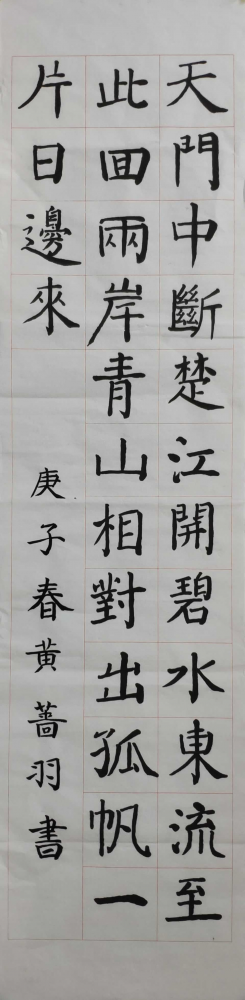 天門中斷楚江開碧水東流至
此回兩岸青山相對出孤帆一
片日邊來
庚子春黃薔羽書